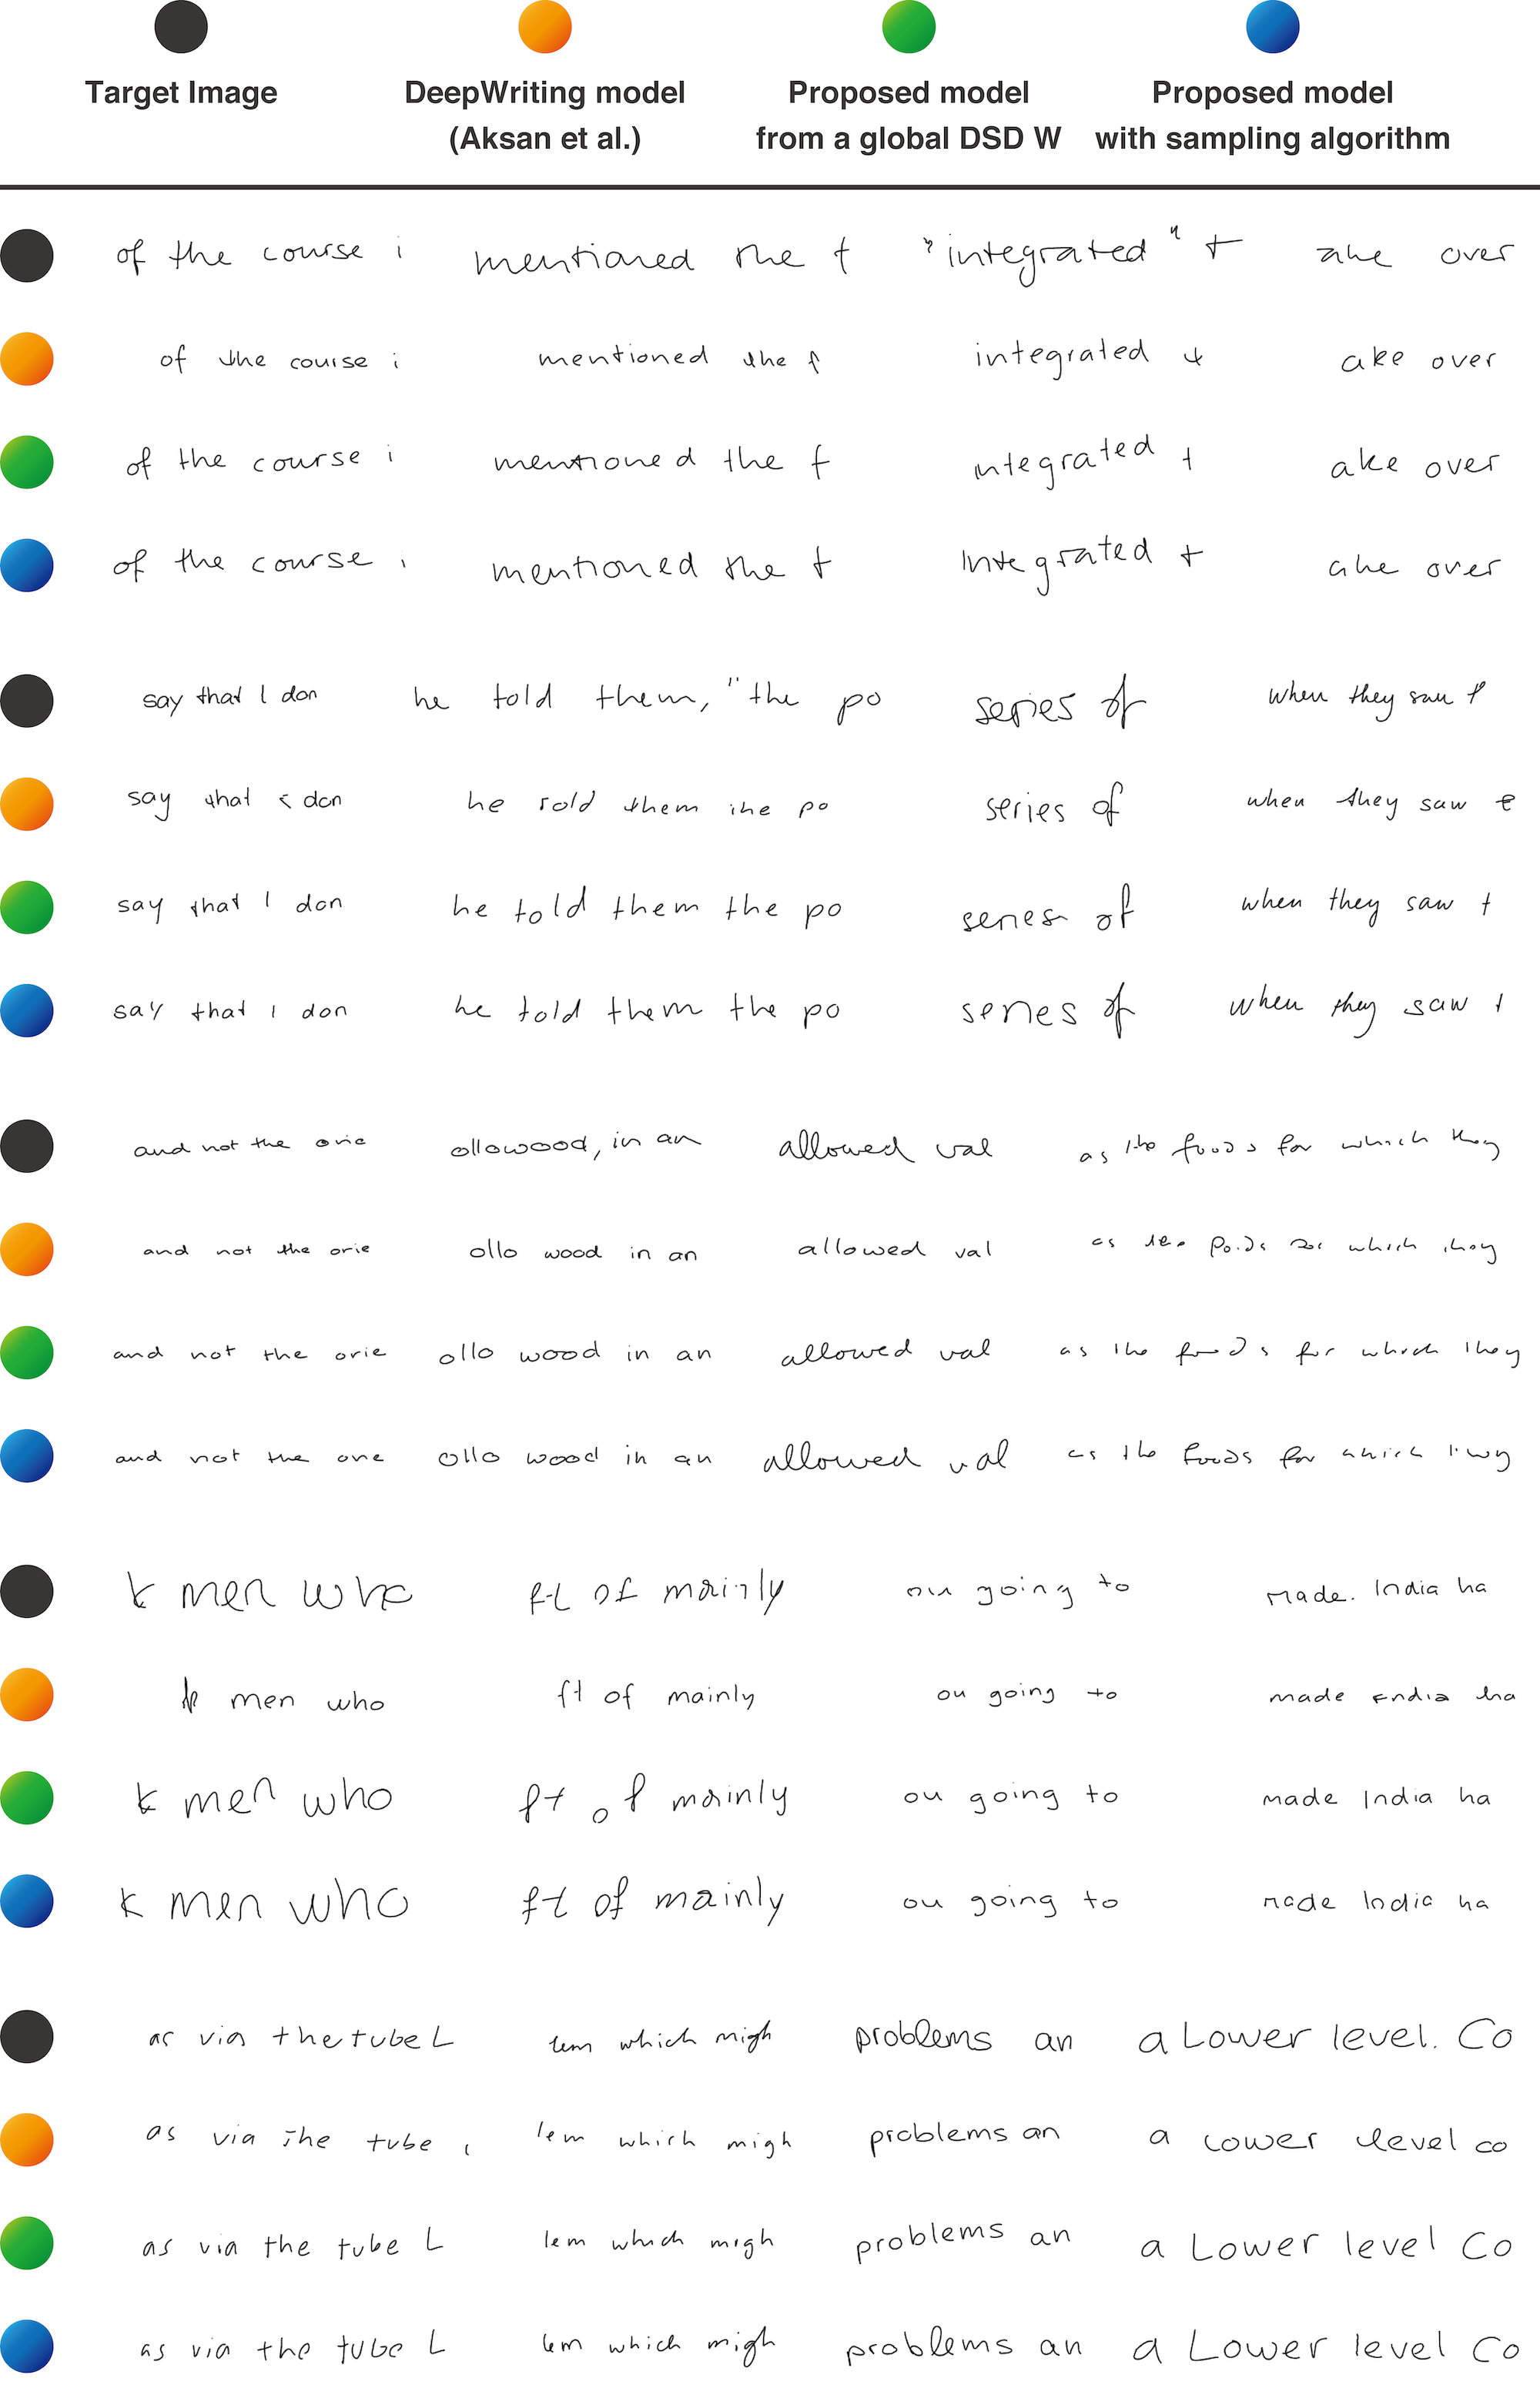 Target Image DeepWriting model Proposed model Proposed model
(Aksan et al.) from a global DSD W with sampling algorithm
of the course i mentioned the t "integrated" t ake over
of the course i mentioned the f integrated t ake over
of the course i mentioned the f integrated t ake over
of the course i mentioned the t Integrated t ake over
say that I don he told them, "the po series of when they saw t
say that don he told them the po series of when they saw
say that I don he told them the po series of when they saw t
say that I don he told them the po series of when they saw t
and not the orie ollowood, in an allowed val as the foods for which they
and not the orie ollo wood in an allowed val as which they
and not the orie ollo wood in an allowed val as the foods for which they
and not the one ollo wood in an allowed val as the foods for which
k men who ft of mainly ou going to made. India ha
k men who ft of mainly ou going to made India ha
k men who ft of mainly ou going to made India ha
k men who ft of mainly ou going to made India ha
as via the tube L lem which migh problems an a Lower level. Co
as via the tube lem which migh problems an a lower level co
as via the tube L lem which migh problems an a Lower level Co
as via the tube L lem which migh problems an a Lower level Co